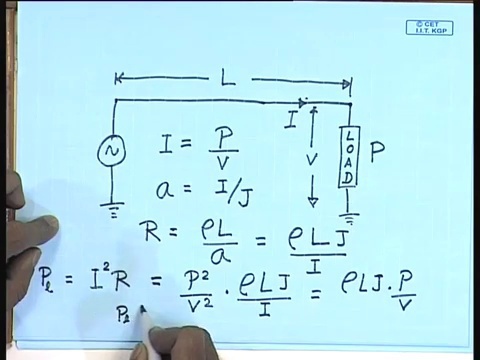 © CET
I.I.T. KGP
L
I
I = P/V
V
LOAD
P
a = I/J
R = ρL/a = ρLJ/I
P_l = I²R = P²/V² · ρLJ/I = ρLJ · P/V
P_l